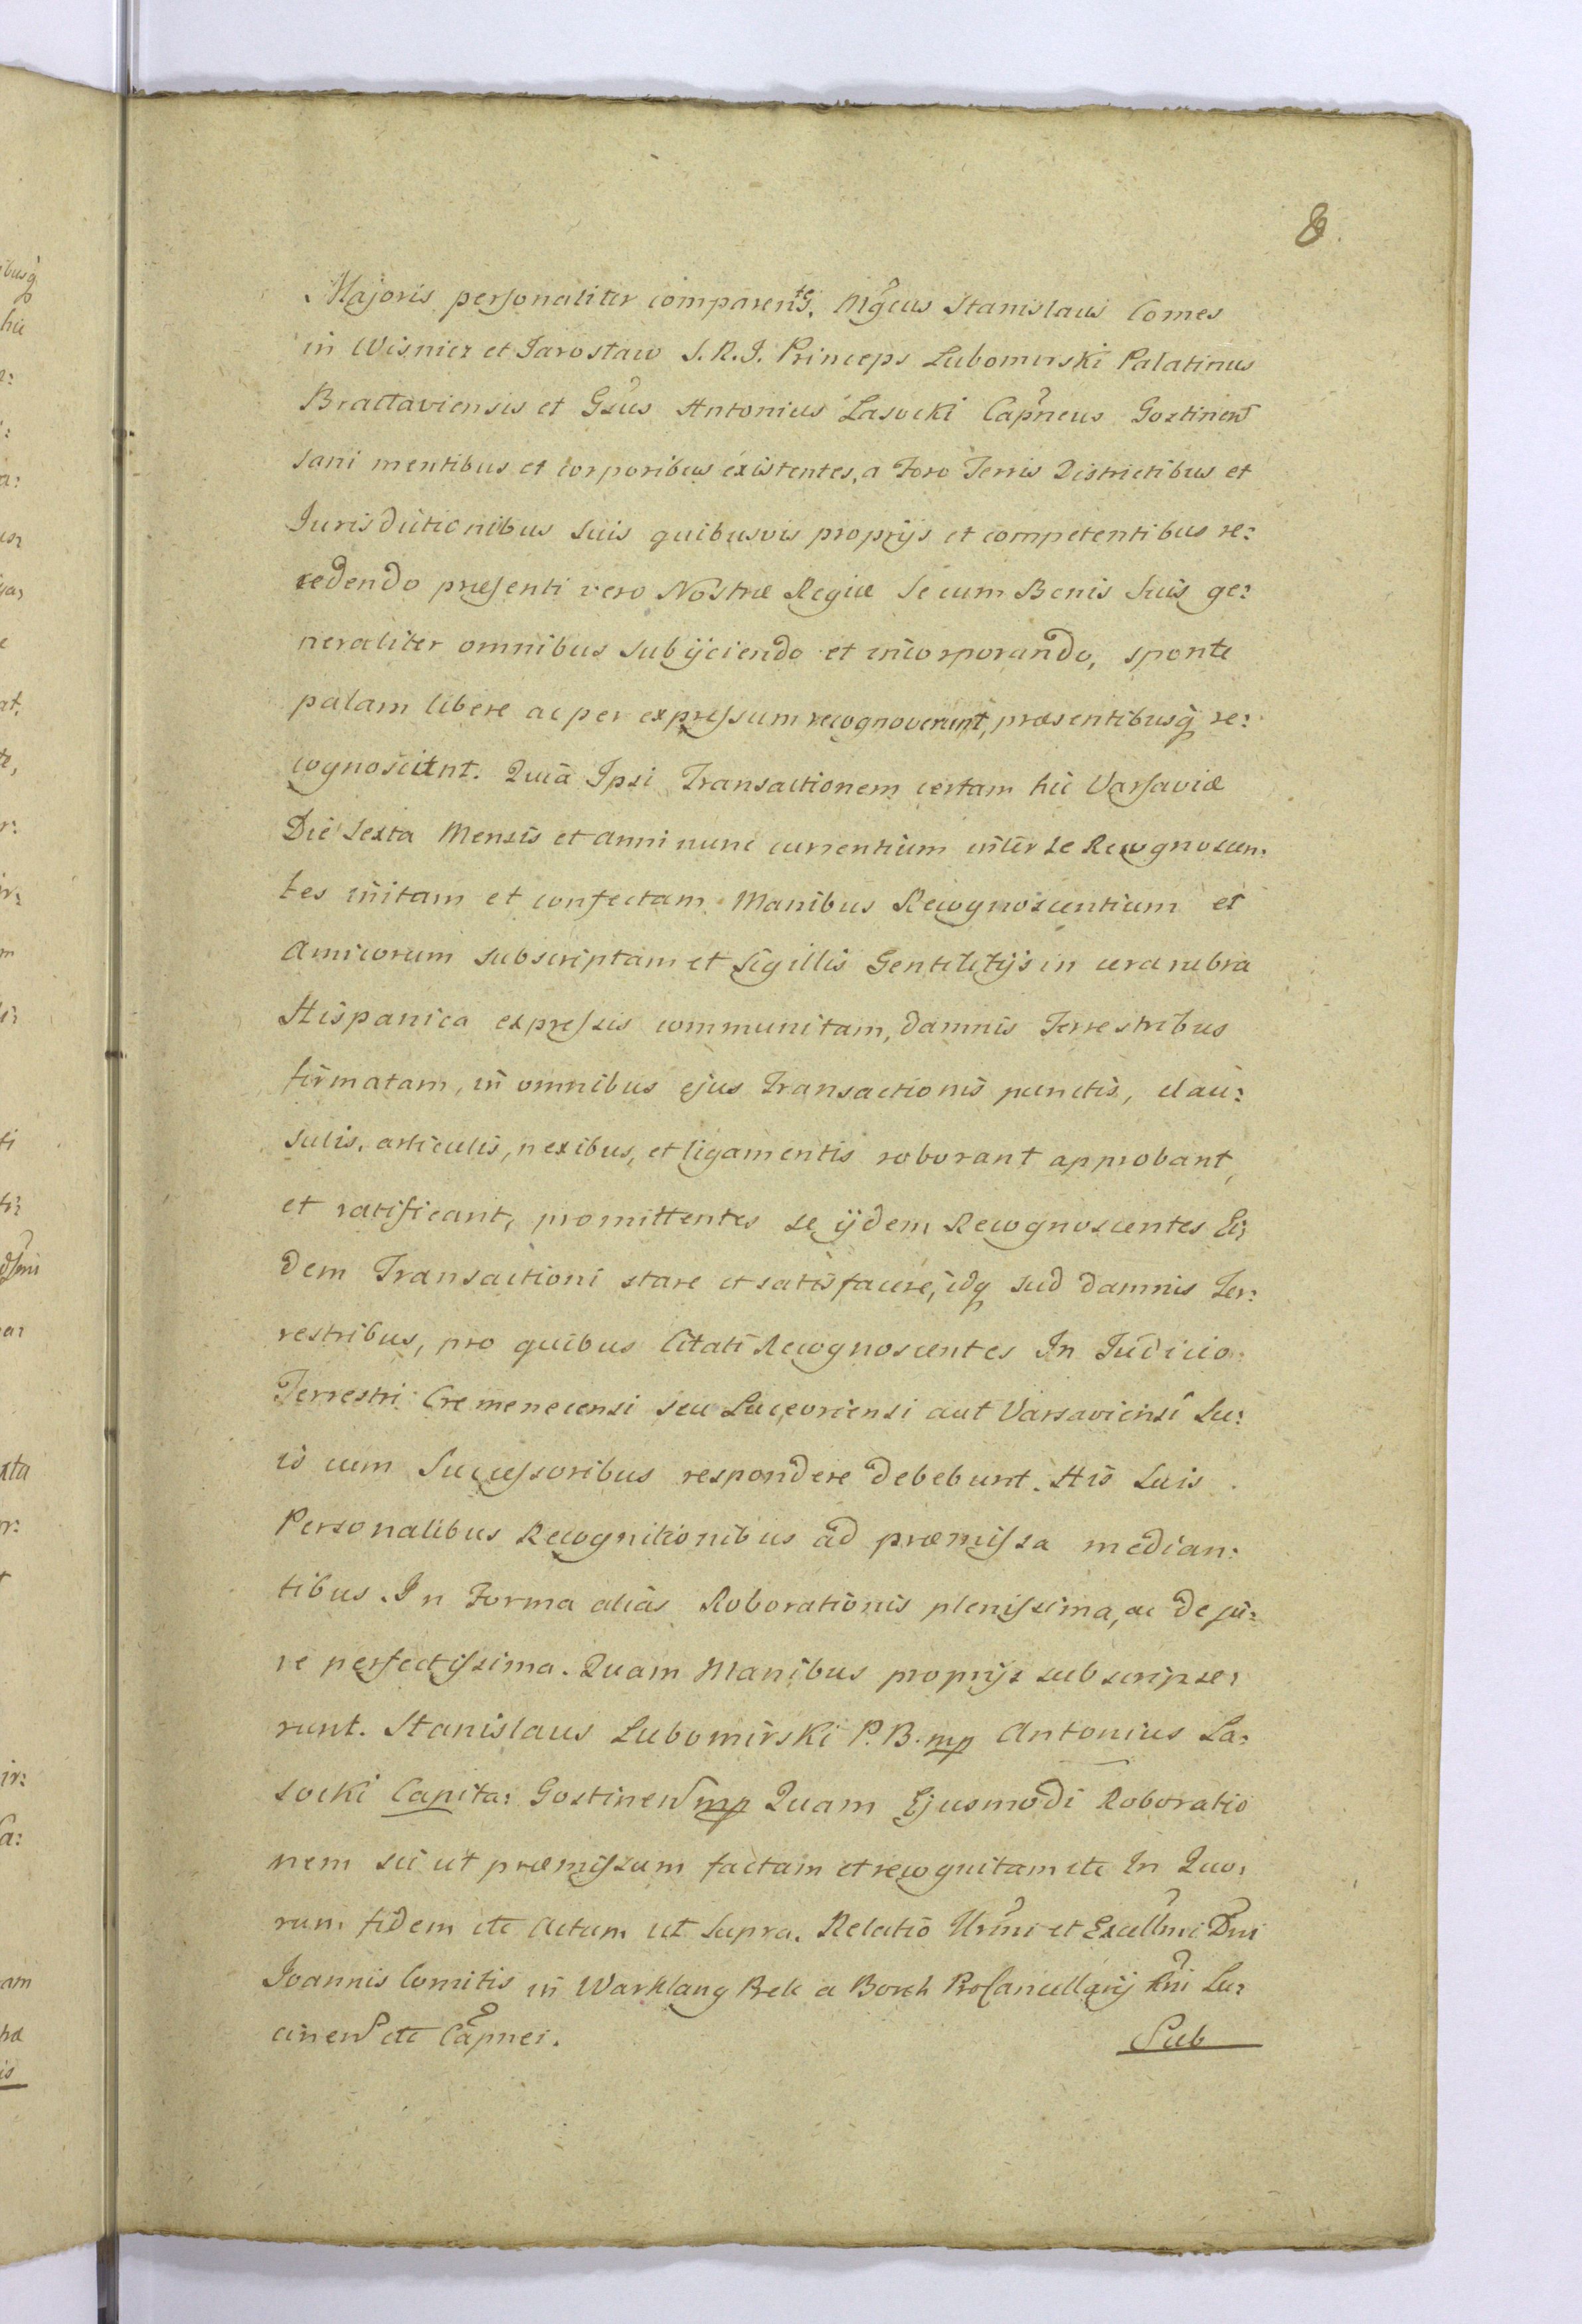 8.
Majoris personaliter comparentes. Mgcus Stanislaus Comes
in Wisnicz et Jarostaw S. R. J. Princeps Lubomirski Palatinus
Bractaviensis et Gsus Antonius Lasocki Capneus Gostinen
sani mentibus et corporibus existentes, a Foro Terris Districtibus et
Jurisdictionibus suis quibusvis proprijs et competentibus re:
cedendo præsenti vero Nostræ Regiæ se cum Bonis suis ge:
neraliter omnibus subijciendo et incorporando, sponte
palam libere ac per expressum recognoverunt, præsentibusq re:
cognoscunt. Quia Ipsi Transactionem certam hic Varsaviæ
Die sexta Mensis et anni nunc currentium inter se Recognoscen:
tes initam et confectam Manibus Recognoscentium et
Amicorum subscriptam et sigillis Gentilitijs in cera rubra
Hispanica expressis communitam, damnis Terrestribus
firmatam, in omnibus ejus Transactionis punctis, clau:
sulis, articulis, nexibus, et ligamentis roborant approbant,
et ratificant, promittentes se ijdem Recognoscentes Ei:
dem Transactioni stare et satisfacere, idq sud damnis Ter:
restribus, pro quibus Citati Recognoscentes In Judicio
Terrestri Cremenecensi seu Luceoriensi aut Varsaviensi su:
is cum Successoribus respondere debebunt. His suis
Personalibus Recognitionibus ad præmissa median:
tibus. In Forma alias Roborationis plenissima, ac de ju:
re perfectissima. Quam Manibus proprijs subscripse:
runt. Stanislaus Lubomirski P. B. mp Antonius La:
socki Capita: Gostinen mp Quam Ejusmodi Roboratio
nem sic ut præmissum factam et recognitam etc In Quo:
rum fidem etc Actum ut supra. Relatio Illrmi et Excellmi Dni
Joannis Comitis in Warklang Prek a Borch ProCancellarij Rni Lu:
cinen etc Capnei.
Sub